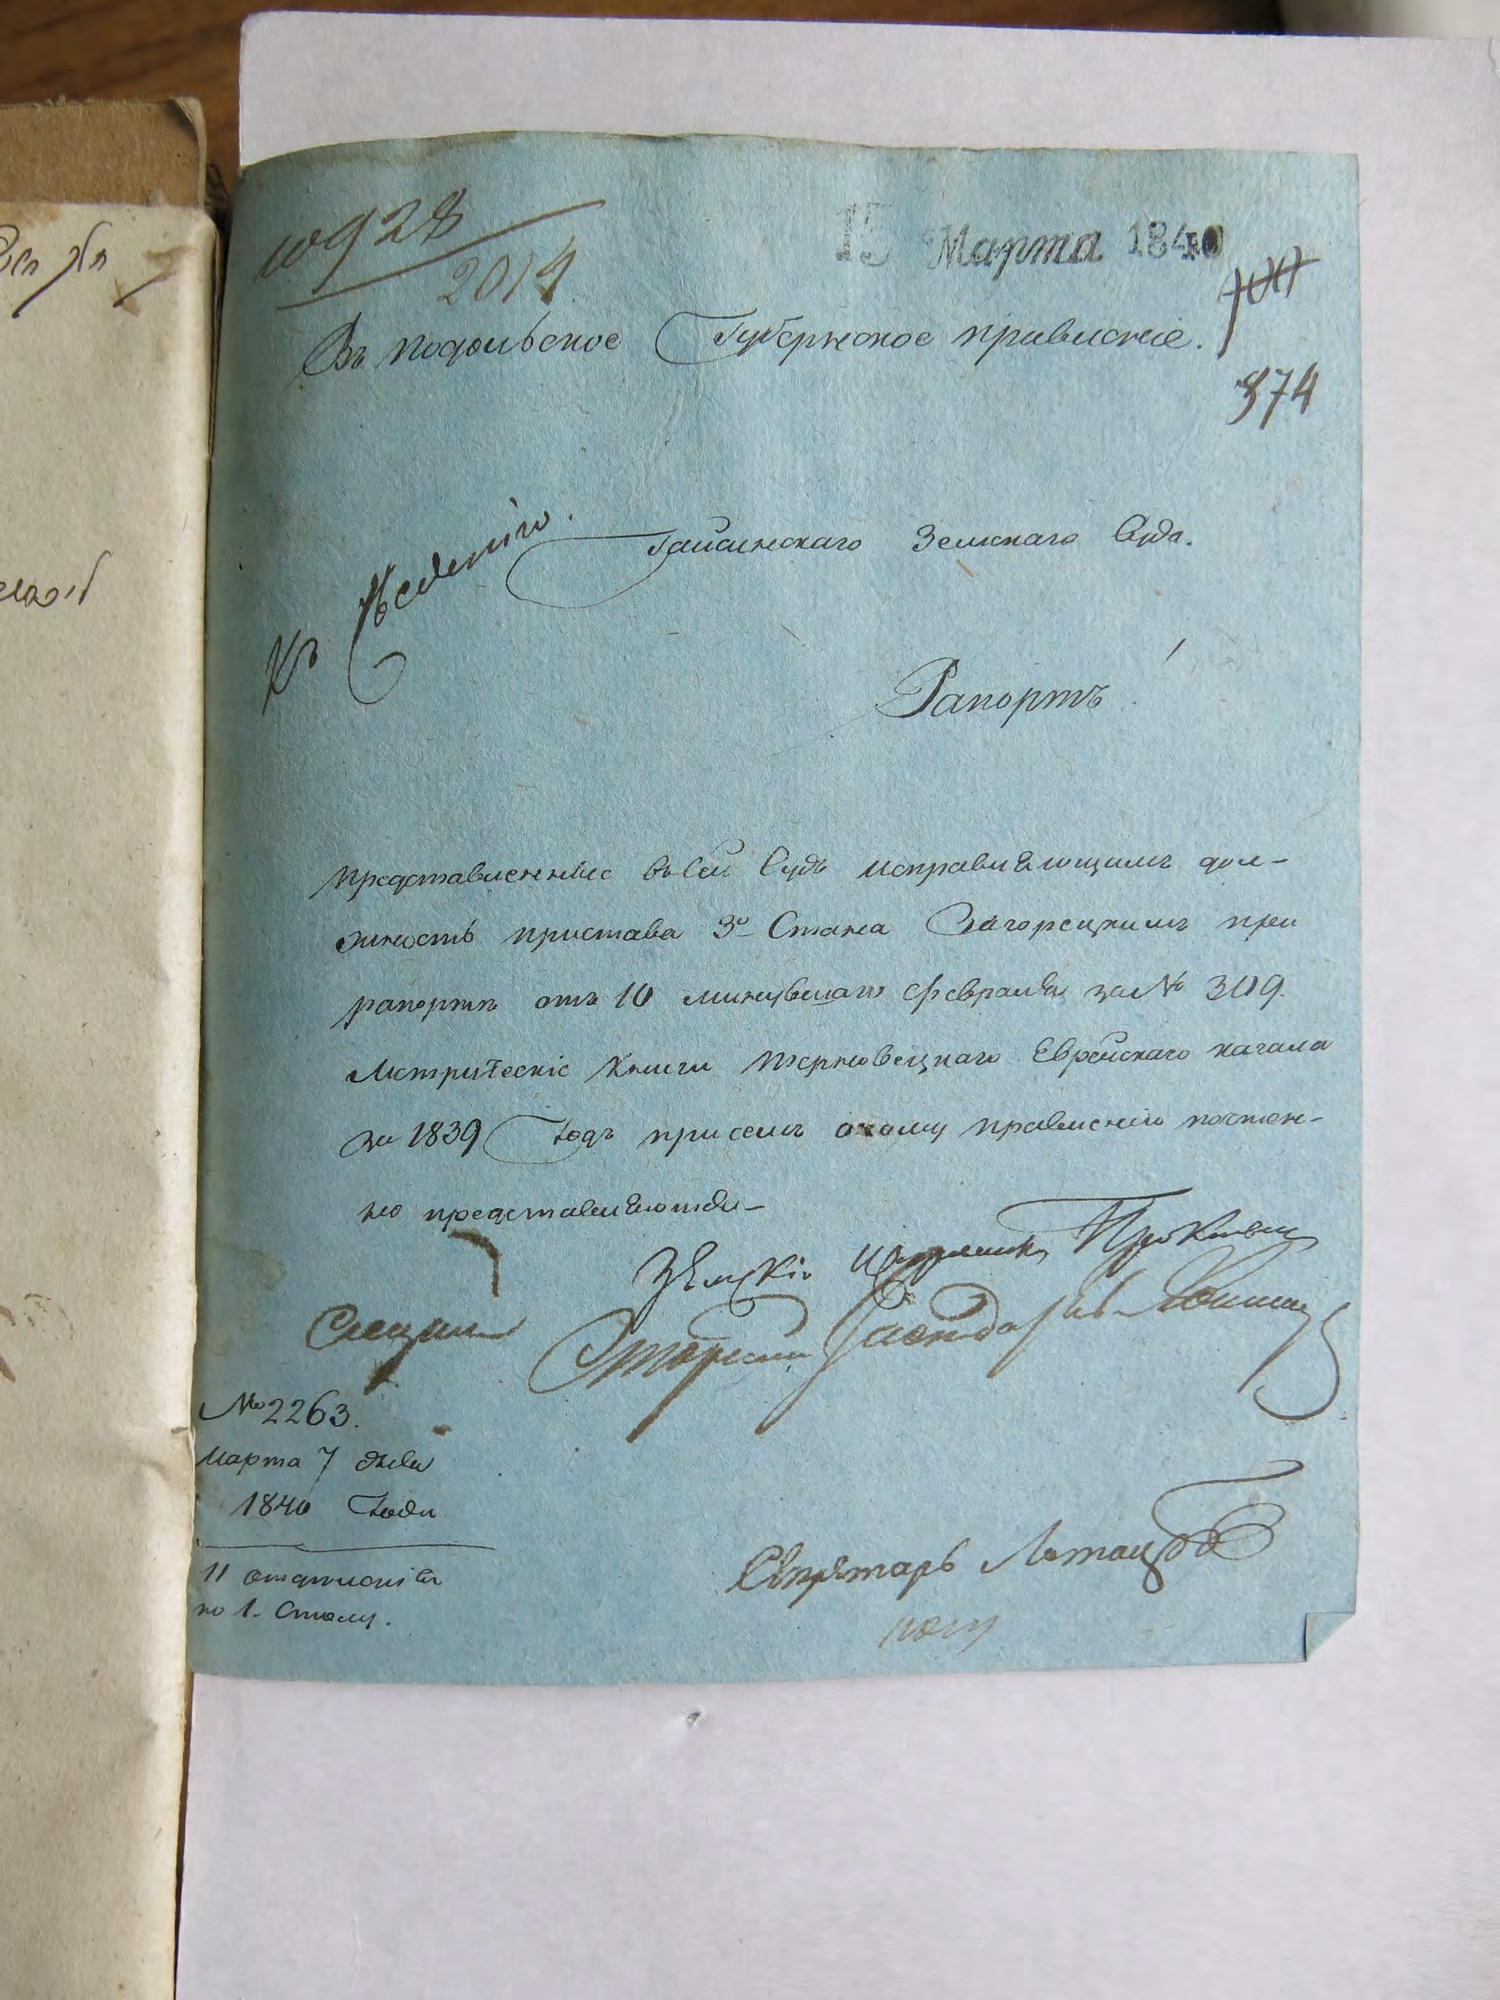 10928
2014
15 Марта 1840
374
Въ Подольское Губернское правленіе.
Къ Сведенію.
Гайсинскаго Земскаго Суда.
Рапортъ
Представленные въ сей Судъ исправляющимъ дол-
жность пристава 3º Стана Загорецкимъ при
рапортѣ отъ 10 минувшаго февраля за № 309.
Метрическіе Книги Терновецкаго Еврейскаго кагала
за 1839 Годъ при семъ оному правленію почтен-
но представляются
Земскій
№ 2263.
Марта 7 дня
1840 Года
II отдѣленія
по 1. Столу.
Секретарь